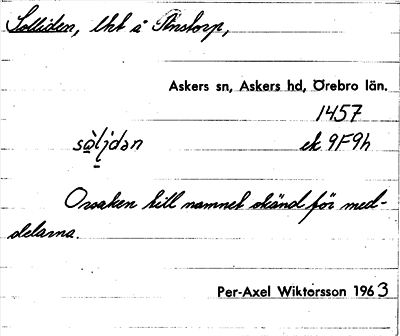 Solliden, lht å Ånstorp,
Askers sn, Askers hd, Örebro län.
1457
ek 9F9h
Orsaken till namnet okänd för med-
delarna.
Per-Axel Wiktorsson 1963